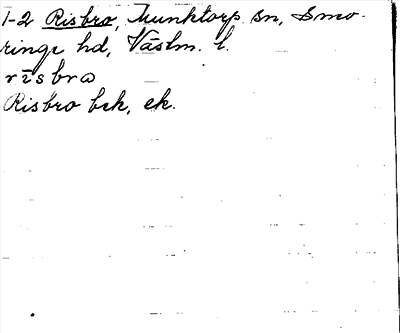 1-2 Risbro, Munktorp sn, Snäv-
ringe hd, Västm. l.
rīsbrω
Risbro bek, ek.